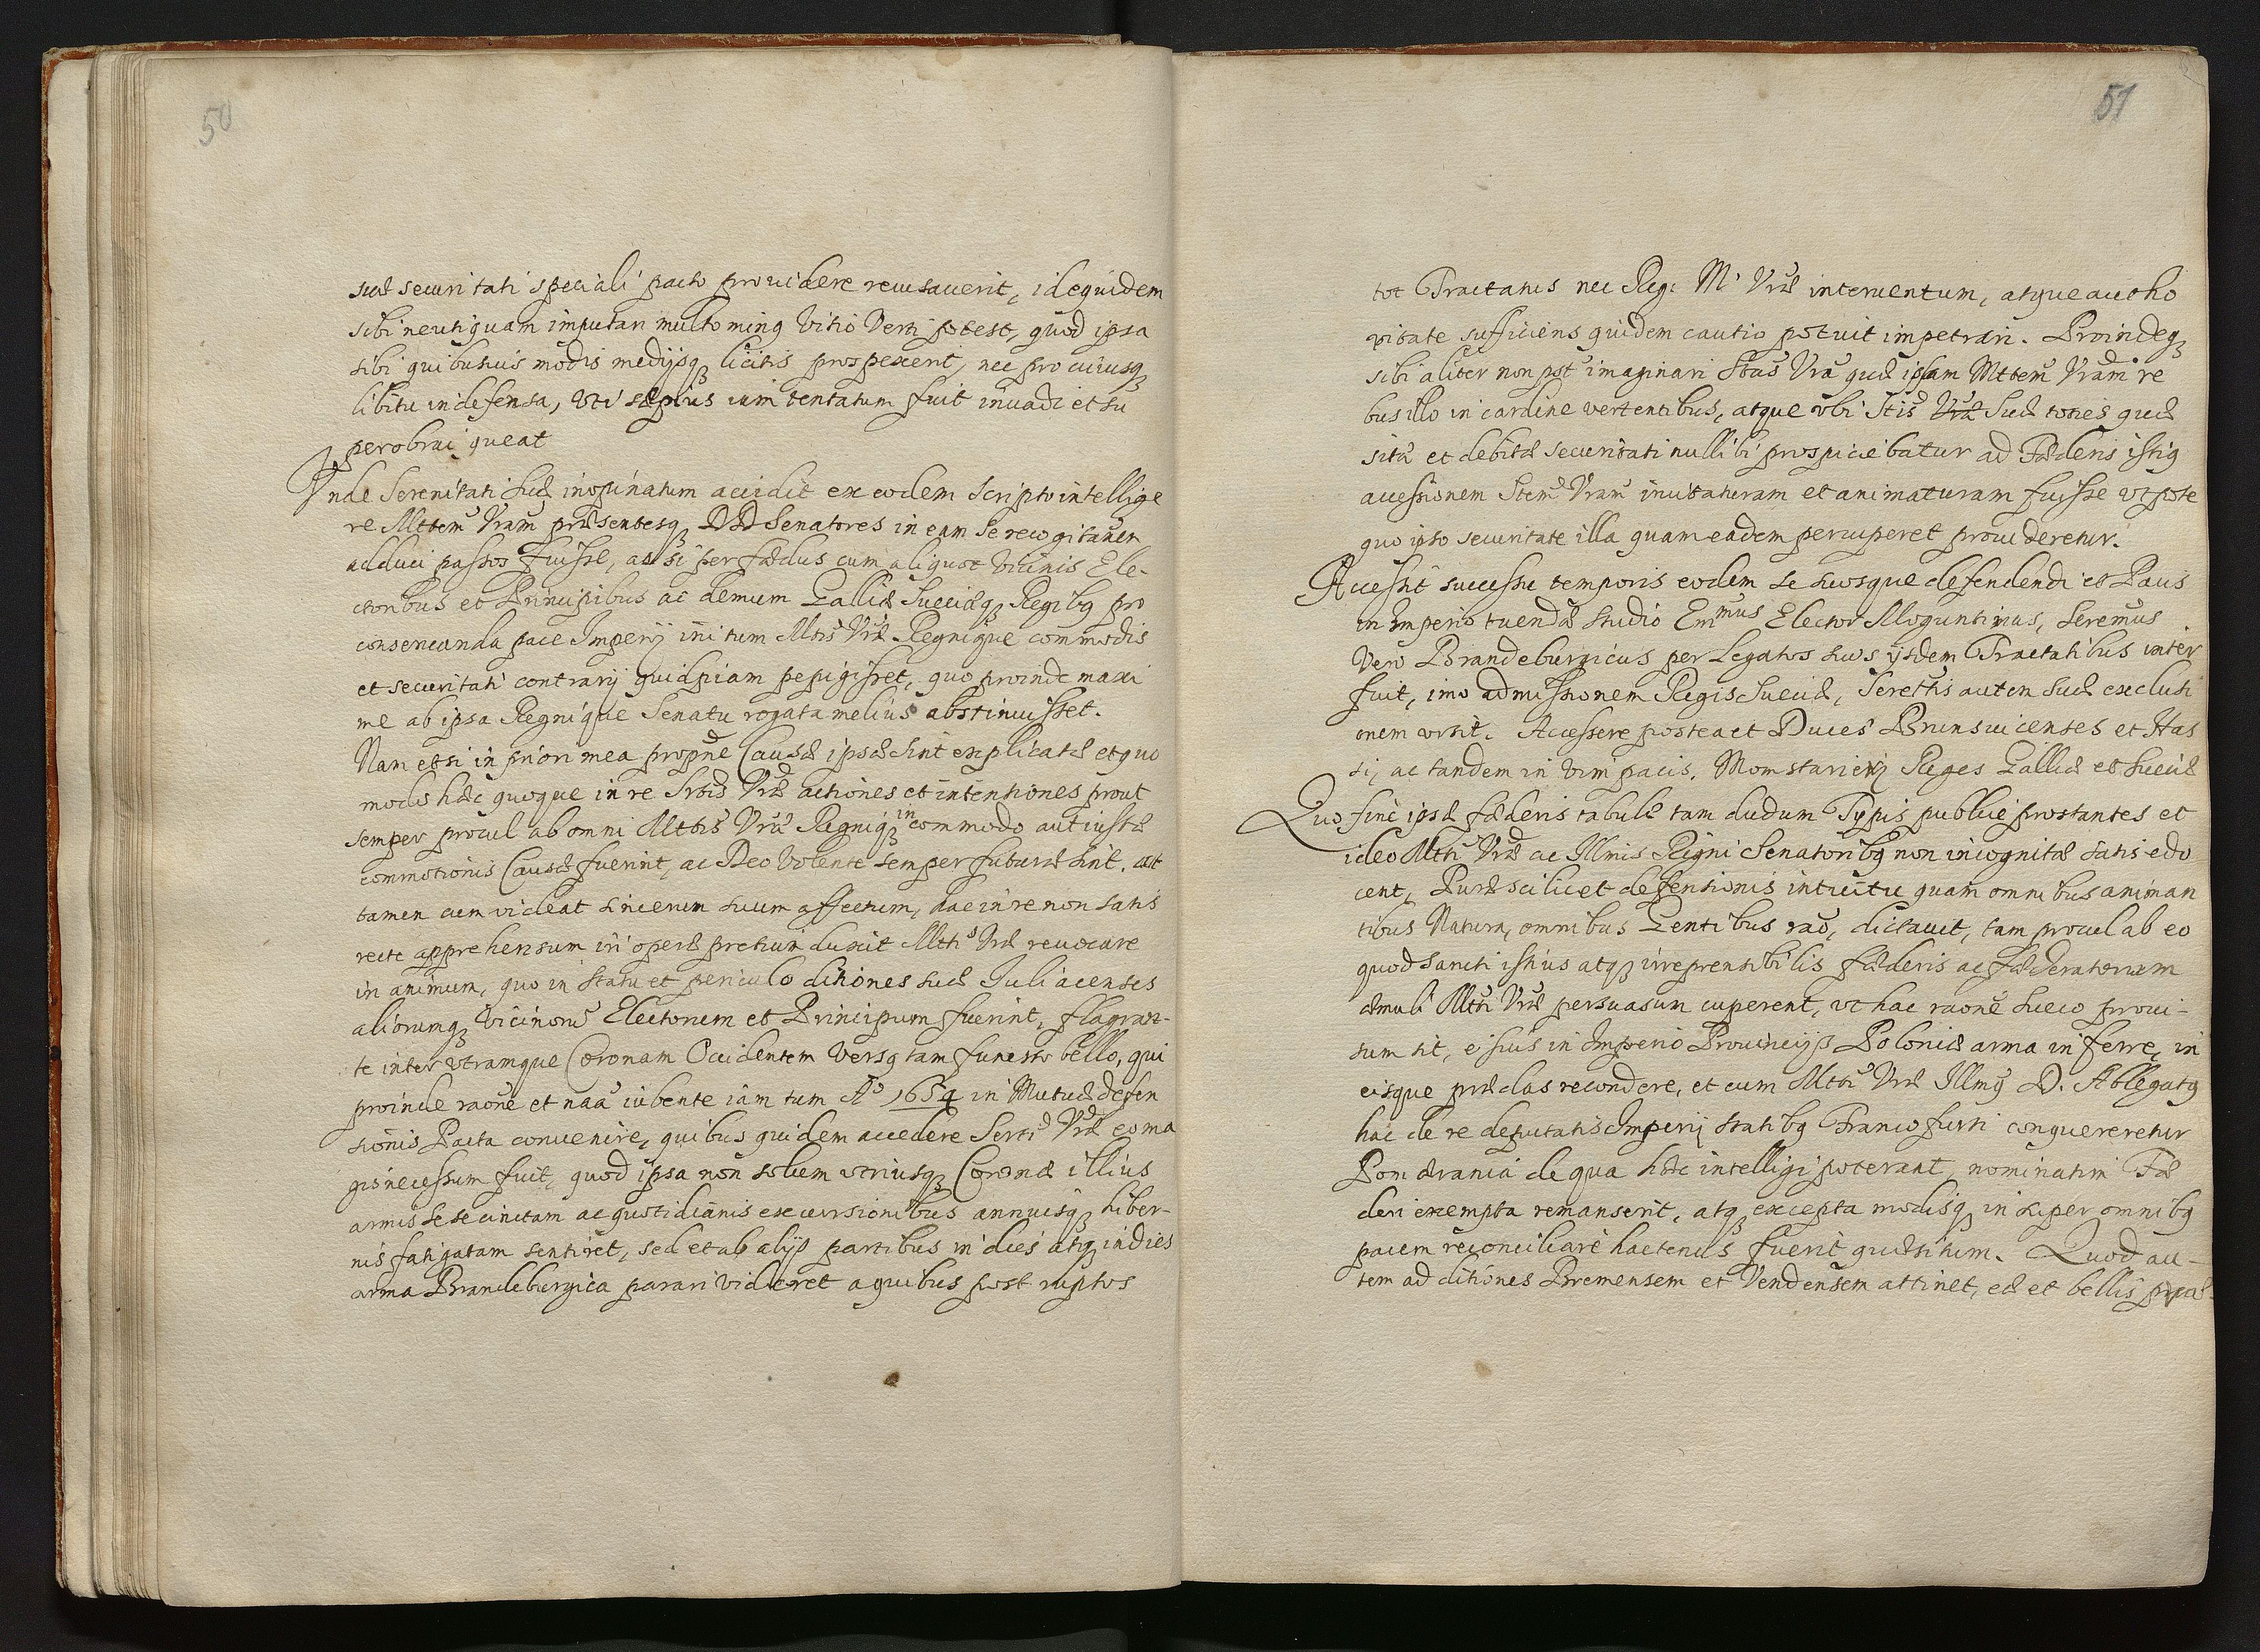 50
suæ securitati speciali pacto prouidere recusauerit, id equidem
sibi neutiquam imputari multo minq vitio verti potest, quod ipsa
sibi quibusuis modis medijsq licitis prospexerit, nec pro cuiusq
libitu indefensa, vti sæpius iam tentatum fuit inuadi et su
perobrui queat
Inde Serenitati Suæ inopinatum accidit ex eodem scripto intellige
re Mttem Vram præsentesq DD Senatores in eam se recogitaōem
adduci passos fuisse, ac si per fædus cum aliquot vicinis Ele-
ctoribus et Principibus ac demum Galliæ Sueciæq Regibq pro
conseruanda pace Imperij initum Mtis Vræ Regnique commodis
et securitati contrarij quidpiam pepigisset, quo proinde maxi
me ab ipsa Regnique Senatu rogata melius abstinuisset.
Nam etsi in priori mea propne Causæ ipsæ sint explicatæ et quo
modo hæc quoque in re Srtis Vræ actiones et intentiones prout
semper procul ab omni Mttis Vræ Regniq incommodo aut iustæ
commotionis Causæ fuerint, ac Deo volente semper futuræ sint. at
tamen cum videat sincerum suum affectum, hac in re non satis
recte apprehensum iri operæ pretium duxit Mtti Vræ reuocare
in animum, quo in statu et periculo ditiones suæ Iuliacenses
aliorumq vicinorū Electorum et Principum fuerint, flagran-
te inter vtramque Coronam Occidentem versq tam funesto bello, qui
proinde raoñe et naā iubente iam tum Ao 1654 in Mutuæ defen
sionis Pacta conuenire, quibus quidem accedere Serti Vræ eo ma
gis necessum fuit, quod ipsa non solum vtriusq Coronæ illius
armis sese cinctam ac quotidianis excursionibus annuisq hiber-
nis fatigatam sentiret, sed et ab alijs partibus in dies atq indies
arma Brandeburgica parari videret a quibus post ruptos
51
tot Tractatus nec Reg: Mt Vræ interuentum, atque autho
ritate sufficiens quidem cautio potuit impetrari. Proindeq
sibi aliter non pot imaginari Stas Vra quæ ipsam Mttem Vram re
bus illo in cardine vertentibus, atque vbi Stis Vræ Suæ toties quæ
sitæ et debitæ securitati nullibi prospiciebatur ad Fæderis istiq
accessionem Stem Vram inuitaturam et animaturam fuisse vtpote
quo ipso securitate illa quam eadem percuperet prouideretur.
Accessit successu temporis eodem se suosque defendendi et Pacis
in Imperio tuendæ studio Emmus Elector Moguntinus, Seremus
Vero Brandeburgicus per Legatos suos ijsdem Tractatibus inter
fuit, imo admissionem Regis Sueciæ, Serettis autem Suæ exclusi
onem vrsit. Accessere postea et Duces Brunsuicenses et Has
si, ac tandem in vim pacis, Monasteriensis Reges Galliæ et Sueciæ
Quo fine ipsæ fæderis tabulæ tam dudum Typis publice prostantes et
ideo Mtti Vræ ac Illmis Regni Senatoribq non incognitæ satis edo
cent, Puræ scilicet defensionis intuitu quam omnibus animan
tibus Natura, omnibus Gentibus raō, dictauit, tam procul ab eo
quod sancti istius atq irreprensibilis fæderis ac fæderatorum
æmuli Mtti Vræ persuasum cuperent, vt hac raone Sueco proui-
sum sit, e suis in Imperio Prouincijs Poloniæ arma inferre, in
eisque prædas recondere, et cum Mttis Vræ Illmq D. Ablegatq
hac de re deputatis Imperij statibq Francofurti conquereretur
Pomærania de qua hæc intelligi poterant, nominatim Fæ
deri exempta remanserit, atq excepta modisq insuper omnibq
pacem reconciliare hactenus fuerit quæsitum. Quod au-
tem ad ditiones Bremensem et Vendensem attinet, eæ et bellis